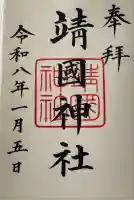 奉拝
靖國神社
令和八年一月五日
靖國神社